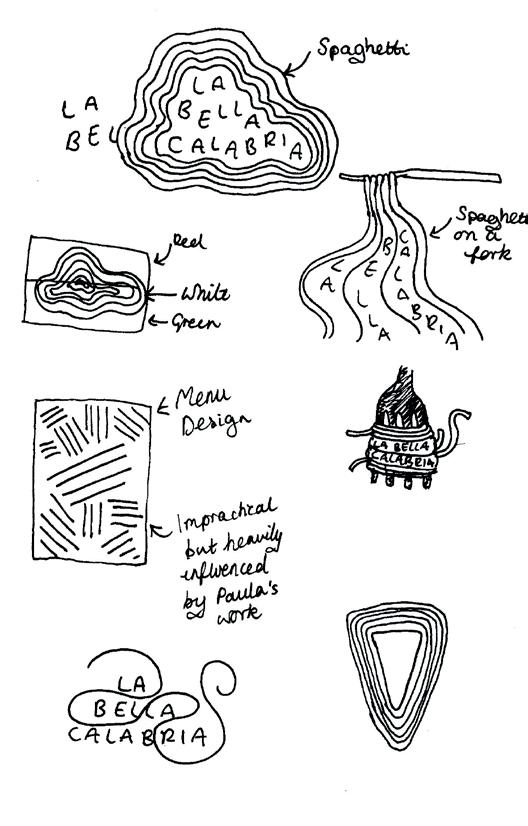 Spaghetti
LA
BEL
LA
BELLA
CALABRIA
Spaghetti
on a
fork
LA
BELLA
CALABRIA
Red
White
Green
Menu
Design
LA BELLA
CALABRIA
Impractical
but heavily
influenced
by Paula's
work
LA
BELLA
CALABRIA